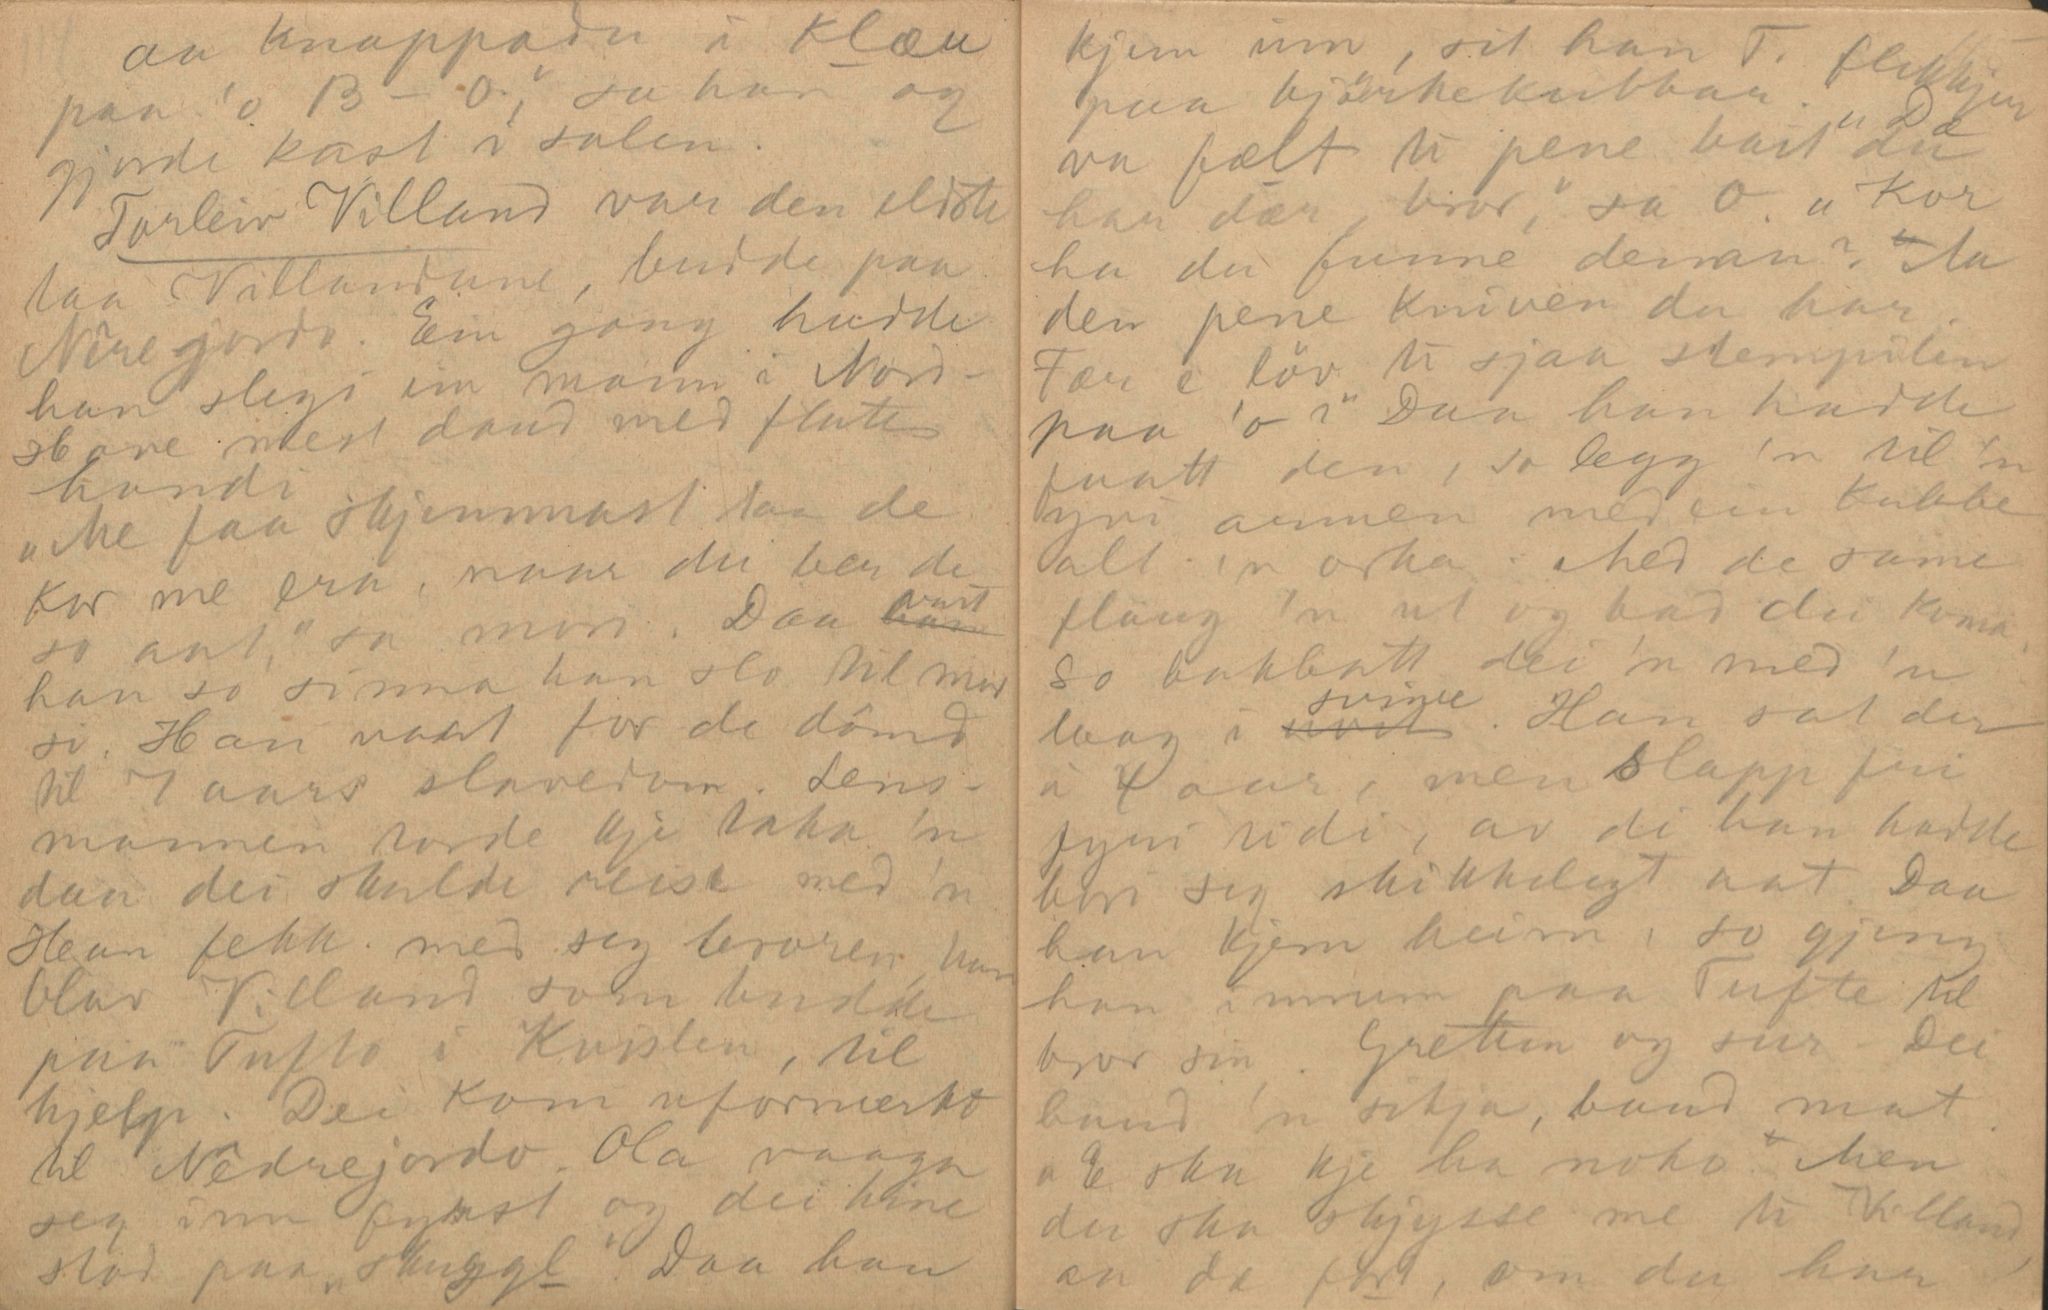 aa knappadn i klæu
paa 'o B – O.," sa han og
gjorde kast i salen.
Torleiv Villand var den eldste
taa Villandane, budde paa
Niregjordo. Ein gong hadde
han slegi ein mann i Nord-
stove mest daud med flate
handi
„Me faa skjemmast taa de
kor me era, naar du ber de
so aat," sa mori. Daa vart
han so sinna han slo til mor
si. Han vart for de dömd
til 7 aars slavedom. Lens-
mannen torde kje taka 'n
daa dei skulde reise med 'n
Han fekk med seg broren, han
Olav Villand som budde
paa Tufto i Kvislen, til
hjelp. Dei kom uformerkt
til Nêdrejordo. Ola vaaga
seg inn fyrst og dei hine
stod paa „skuggl". Daa han
kjem inn, sit han T. flekkjer
paa björkekubbar. „Dæ
va fælt ti pene bast du
har dær, bror," sa O. „Kor
ha du funne denan?" "Aa
den pene kniven du har.
Fær e löv ti sjaa stempilen
paa 'o?" Daa han hadde
faatt den, so legg 'n til 'n
yvi armen med ein kubbe
alt 'n orka. Med de same
flaug 'n ut og bad dei koma.
So bakbatt dei 'n med 'n
laag i svime. Han sat der
i 4 aar, men slapp fri
fyri tidi, av di han hadde
bori seg skikkelegt aat. Daa
han kjem heim, so gjeng
han innum paa Tufte til
bror sin. Gretten og sur. Dei
baud 'n sitja, baud mat.
„E ska kje ha noko." Men
du ska skjysse me ti Villand,
aa dæ fort, om du har